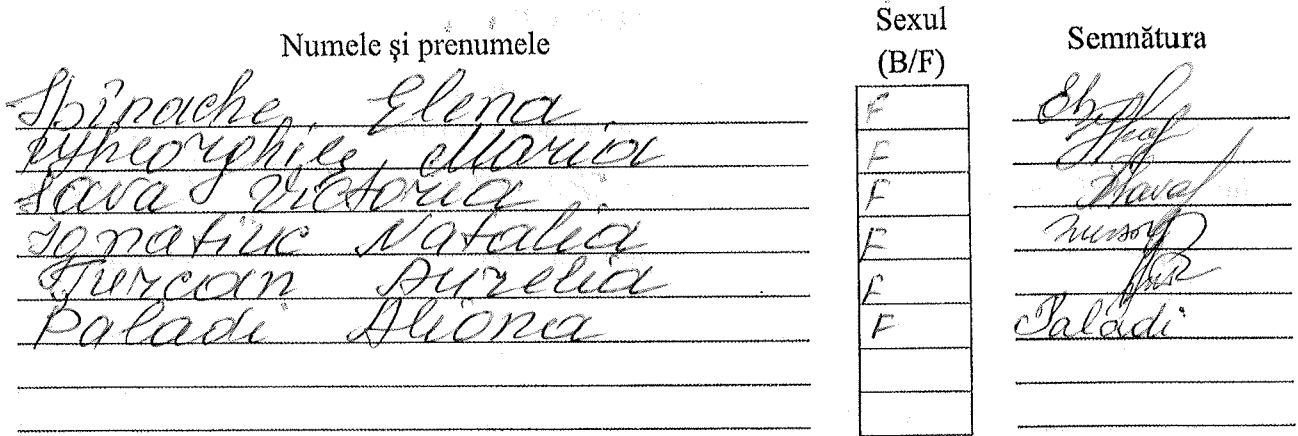 Numele și prenumele Sexul (B/F) Semnătura
Spînache Elena F
Gheorghieș Maria F
Sava Victoria F
Ignatiuc Natalia F
Țurcan Aurelia F
Paladi Aliona F Paladi